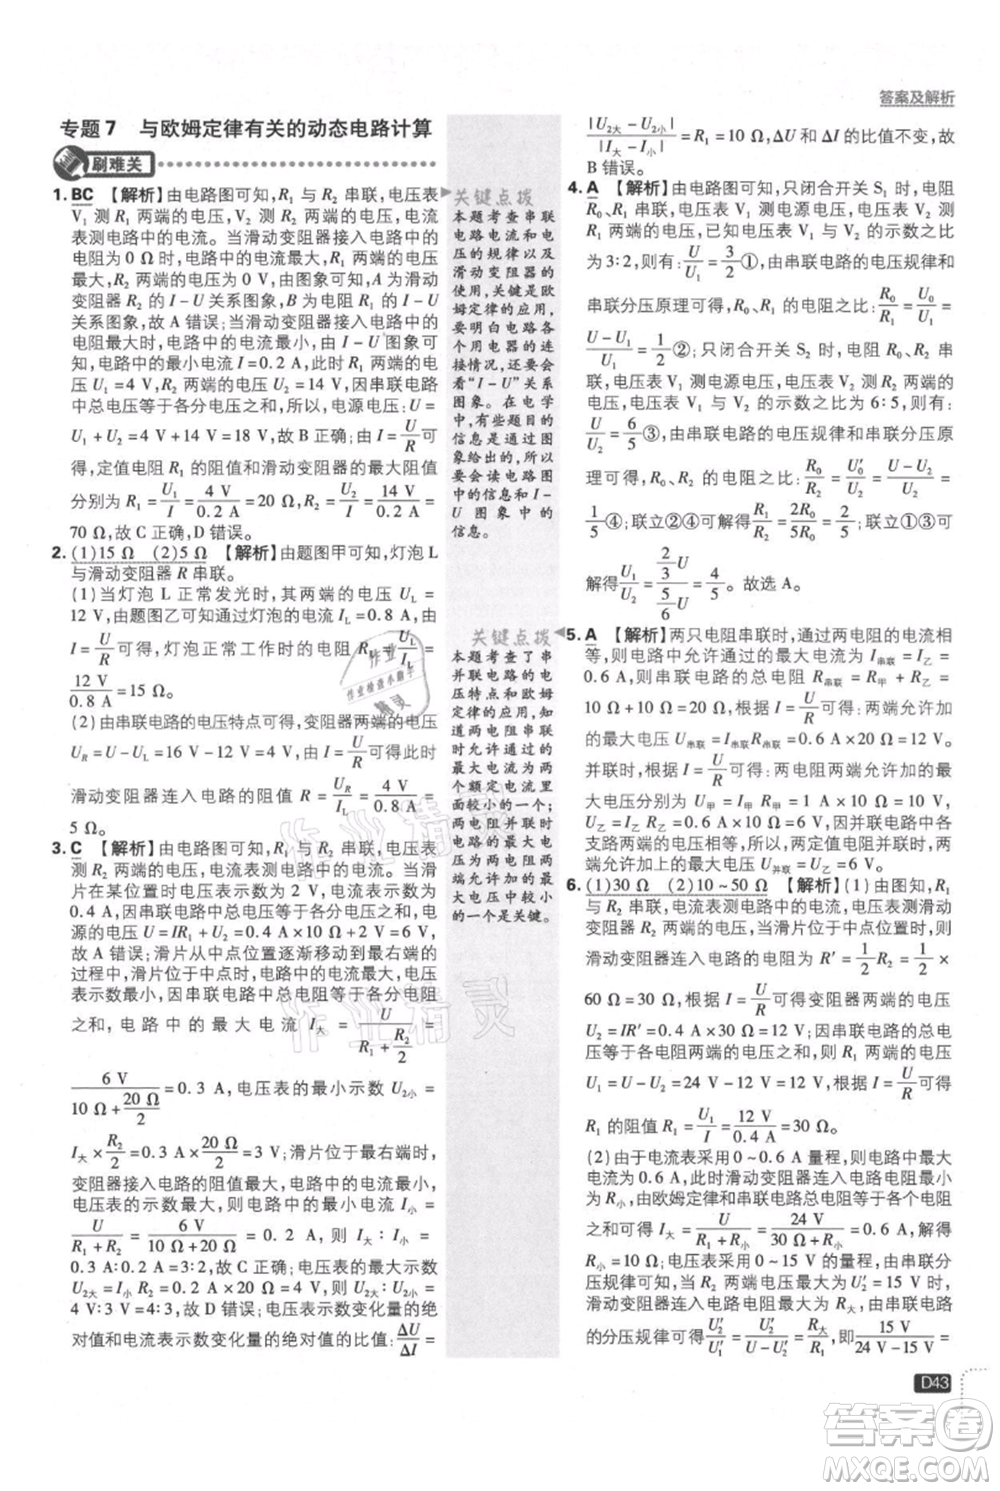 答案及解析
专题7 与欧姆定律有关的动态电路计算
刷难关
1. BC 【解析】由电路图可知，R₁ 与 R₂ 串联，电压表
V₁ 测 R₁ 两端的电压，V₂ 测 R₂ 两端的电压，电流
表测电路中的电流。当滑动变阻器接入电路中的
电阻为 0 Ω 时，电路中的电流最大，此时 R₁ 的电压
最大，而 R₂ 两端的电压为 0 V，由图象可知 A 为滑动
变阻器 R₂ 的 I－U 关系图象，B 为电阻 R₁ 的 I－U
关系图象，故 A 错误；当滑动变阻器接入电路中的
电阻最大时，电路中的电流最小，由 I－U 图象可
知，电路中的最小电流 I = 0.2 A，此时 R₁ 两端的电
压 U₁ = 4 V，R₂ 两端的电压 U₂ = 14 V，因串联电路
中总电压等于各分电压之和，所以，电源电压 U =
U₁ + U₂ = 4 V + 14 V = 18 V，故 B 正确；由 I = U/R 可
得，定值电阻 R₁ 的阻值和滑动变阻器的最大阻值
分别为 R₁ = U₁/I = 4 V/0.2 A = 20 Ω，R₂ = U₂/I = 14 V/0.2 A =
70 Ω，故 C 正确，D 错误。
2. (1)15 Ω (2)5 Ω 【解析】由题图甲可知，灯泡 L
与滑动变阻器 R 串联。
(1)当灯泡 L 正常发光时，其两端的电压 U_L =
12 V，由题图乙可知通过灯泡的电流 I_L = 0.8 A，由
I = U/R 可得，灯泡正常工作时的电阻 R_L = U_L/I_L =
12 V/0.8 A = 15 Ω。
(2)由串联电路的电压特点可得，变阻器两端的电压
U_R = U－U_L = 16 V－12 V = 4 V，由 I = U/R 可得此时
滑动变阻器连入电路的阻值 R = U_R/I_L = 4 V/0.8 A =
5 Ω。
3. C 【解析】由电路图可知，R₁ 与 R₂ 串联，电压表
测 R₂ 两端的电压，电流表测电路中的电流。当滑
片在某位置时电压表示数为 2 V，电流表示数为
0.4 A，因串联电路中总电压等于各分电压之和，电
源的电压 U = IR₁ + U₂ = 0.4 A×10 Ω + 2 V = 6 V，
故 A 错误；滑片从中点位置逐渐移动到最右端的
过程中，滑片位于中点时，电路中的电流最大，电压
表的示数最小，因串联电路中总电阻等于各分电阻
之和，电路中的最大电流 I大 = U/(R₁ + R₂/2) =
6 V/(10 Ω + 20 Ω/2) = 0.3 A，电压表的最小示数 U₂小 =
I大×R₂/2 = 0.3 A×20 Ω/2 = 3 V；滑片位于最右端时，
变阻器接入电路中的电阻最大，电路中的电流最小，
电压表的示数最大，则电路中的最小电流 I小 =
U/(R₁ + R₂) = 6 V/(10 Ω + 20 Ω) = 0.2 A，则 I大∶I小 =
0.3 A∶0.2 A = 3∶2，故 C 正确；电压表的最大示数
U₂大 = I小R₂ = 0.2 A×20 Ω = 4 V，则 U₂大∶U₂小 =
4 V∶3 V = 4∶3，故 D 错误；电压表示数变化量的绝
对值和电流表示数变化量的绝对值的比值：ΔU/ΔI =
关键点拨
本题考查串联
电路电流和电
压的规律以及
滑动变阻器的
使用，关键是欧
姆定律的应用，
要明白电路各
个用电器的连
接情况，还要会
看“I－U”关系
图象。在电学
中，有些题目的
信息是通过图
象给出的，所以
要会读电路图
中的信息和 I－
U 图象中的
信息。
关键点拨
本题考查了串
并联电路的电
压特点和欧姆
定律的应用，知
道两电阻串联
时允许通过的
最大电流是两
个额定电流里
面较小的一个；
两电阻并联时
电路两端允许所加最
大电压是两额
定电压中较小
的一个是关键。
|U₂大－U₂小|/|I大－I小| = R₁ = 10 Ω，ΔU 和 ΔI 的比值不变，故
B 错误。
4. A 【解析】由电路图可知，只闭合开关 S₁ 时，电阻
R₀、R₁ 串联，电压表 V₁ 测电源电压，V₂ 测电阻
R₁ 两端的电压，已知电压表 V₁ 与 V₂ 的示数之比
为3∶2，则有：U/U₁ = 3/2①，由串联电路的电压规律和
串联分压原理可得，R₀、R₁ 的电阻之比：R₀/R₁ = U₀/U₁ =
(U－U₁)/U₁ = 1/2②；只闭合开关 S₂ 时，电阻 R₀、R₂ 串
联，电压表 V₁ 测电源电压，V₂ 测电阻 R₂ 两端的电
压，已知电压表 V₁ 与 V₂ 的示数之比为 6∶5，则有：
U/U₂ = 6/5③，由串联电路的电压规律和串联分压原
理可得，R₀、R₂ 的电阻之比：R₀/R₂ = U₀′/U₂ = (U－U₂)/U₂ =
1/5④；联立②④可解得 R₁/R₂ = 2R₀/5R₀ = 2/5；联立①③可
解得 U₁/U₂ = (2/3 U)/(5/6 U) = 4/5。故选 A。
5. A 【解析】两只电阻串联时，通过两电阻的电流相
等，则电路中允许通过的最大电流 I串联 = I乙 =
0.6 A，此时电路的总电阻 R串联 = R甲 + R乙 =
10 Ω + 10 Ω = 20 Ω，由 I = U/R 可得：两端允许加
的最大电压 U串联 = I串联R串联 = 0.6 A×20 Ω = 12 V。
并联时，根据 I = U/R 可得：两电阻两端允许加的
最大电压分别为 U甲 = I甲R甲 = 1 A×10 Ω = 10 V，
U乙 = I乙R乙 = 0.6 A×10 Ω = 6 V，因并联电路中各
支路两端的电压相等，所以，两定值电阻并联时，两
端允许加上的最大电压 U并联 = U乙 = 6 V。故选 A。
6. (1)30 Ω (2)10～50 Ω 【解析】(1)由图知，R₁
与 R₂ 串联，电流表测电路中的电流，电压表测滑动
变阻器 R₂ 两端的电压。当滑片位于中点位置时，
滑动变阻器连入电路的电阻为 R′ = 1/2 R₂ = 1/2×
60 Ω = 30 Ω，根据 I = U/R 可得滑动变阻器的电压
U₂ = IR′ = 0.4 A×30 Ω = 12 V；因串联电路的总电
压等于各电阻两端的电压之和，所以 R₁ 两端的电压
U₁ = U－U₂ = 24 V－12 V = 12 V，由欧姆定律可得
R₁ 的阻值为：R₁ = U₁/I = 12 V/0.4 A = 30 Ω。
(2)由于电流表采用 0～0.6 A 量程，则电路中最大
电流为 0.6 A，此时滑动变阻器连入电路的电阻最小为
R小，由欧姆定律和串联电路总电阻等于各电阻
之和可得 I最大 = U/(R₁ + R小) = 24 V/(30 Ω + R小) = 0.6 A，解得
R小 = 10 Ω；电压表采用 0～15 V 量程，由串联分
压规律可知，当 R₂ 两端电压最大为 U₂′ = 15 V 时，
滑动变阻器连入电路的电阻最大为 R大，由串联电路
的分压规律可得 U₂′/U₁′ = U₂′/(U－U₂′) = R大/R₁，即 15 V/(24 V－15 V) =
D43
答案圈
MXQE.COM
作业精灵